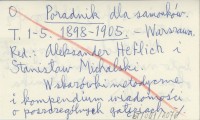 O Poradnik dla samouków.
T. 1-5. 1898-1905. - Warszawa.
Red.: Aleksander Heflich i
Stanisław Michalski.
Wskazówki metodyczne
i kompendium wiadomości
o poszczególnych gałęziach